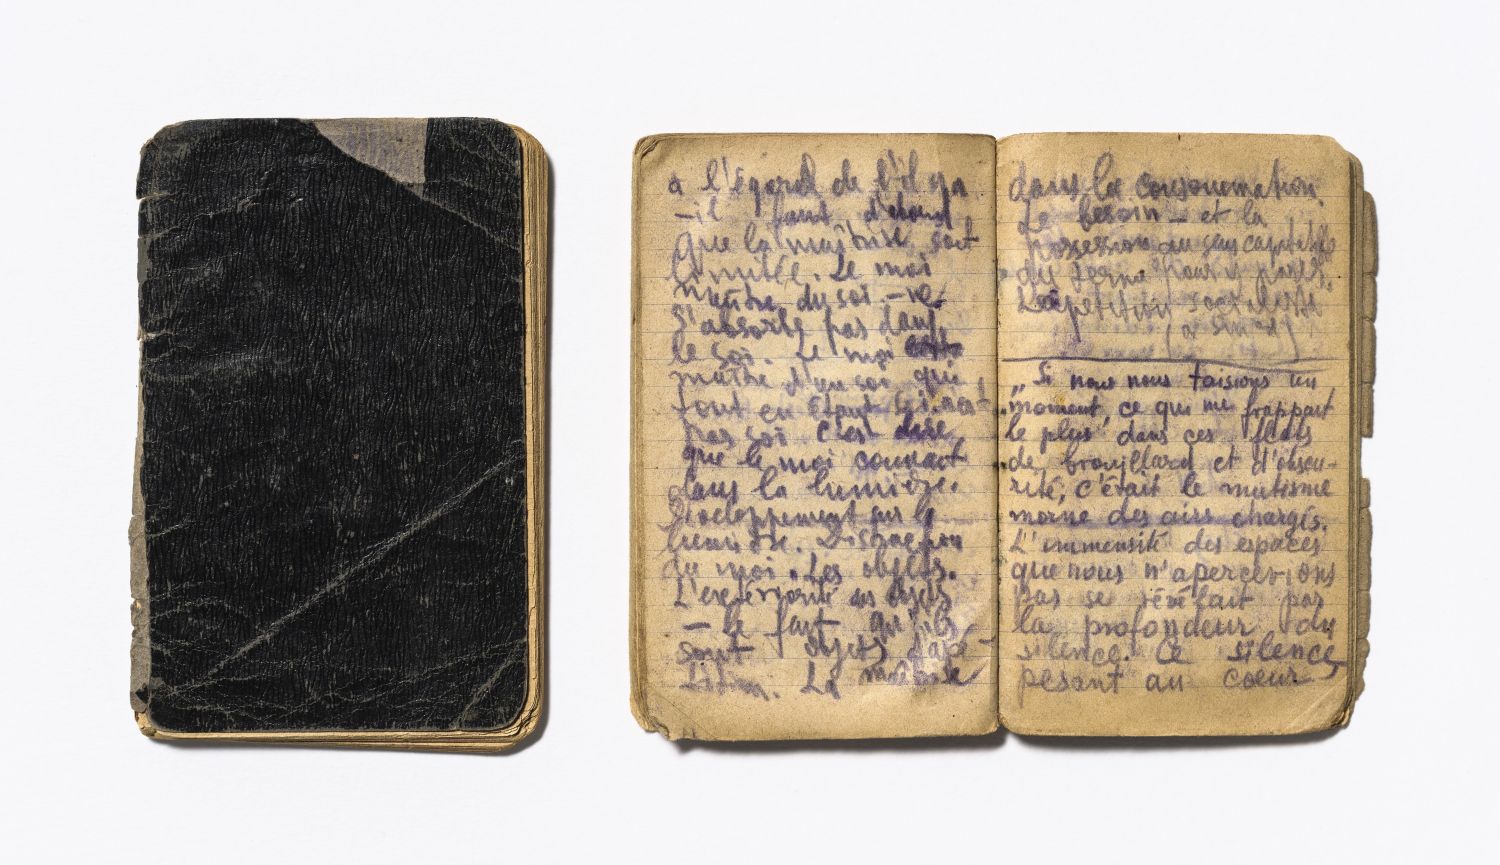 à l'égard de l'il y a
– il faut d'abord
que la maîtrise soit
limitée. Le moi
maître du soi – ne
s'absorbe pas dans
le soi. Le moi
maître d'un soi que
tout en étant soi n'est
pas soi c'est dire
que le moi
dans la lumière.
Développement sur la
lumière. Distraction
du moi. Les objets.
L'extériorité des objets
– le fait qu'ils
sont objets d'acqui-
sition. La morale
dans la consommation.
Le besoin – et la
possession au sens capitaliste
du terme
Répétition socialiste
„Si nous nous taisions un
moment, ce qui me frappait
le plus, dans ces forêts
de brouillard et d'obscu-
rité, c'était le mutisme
morne des airs chargés.
L'immensité des espaces
que nous n'apercevions
pas se révélait par
la profondeur du
silence. Ce silence
pesant au coeur